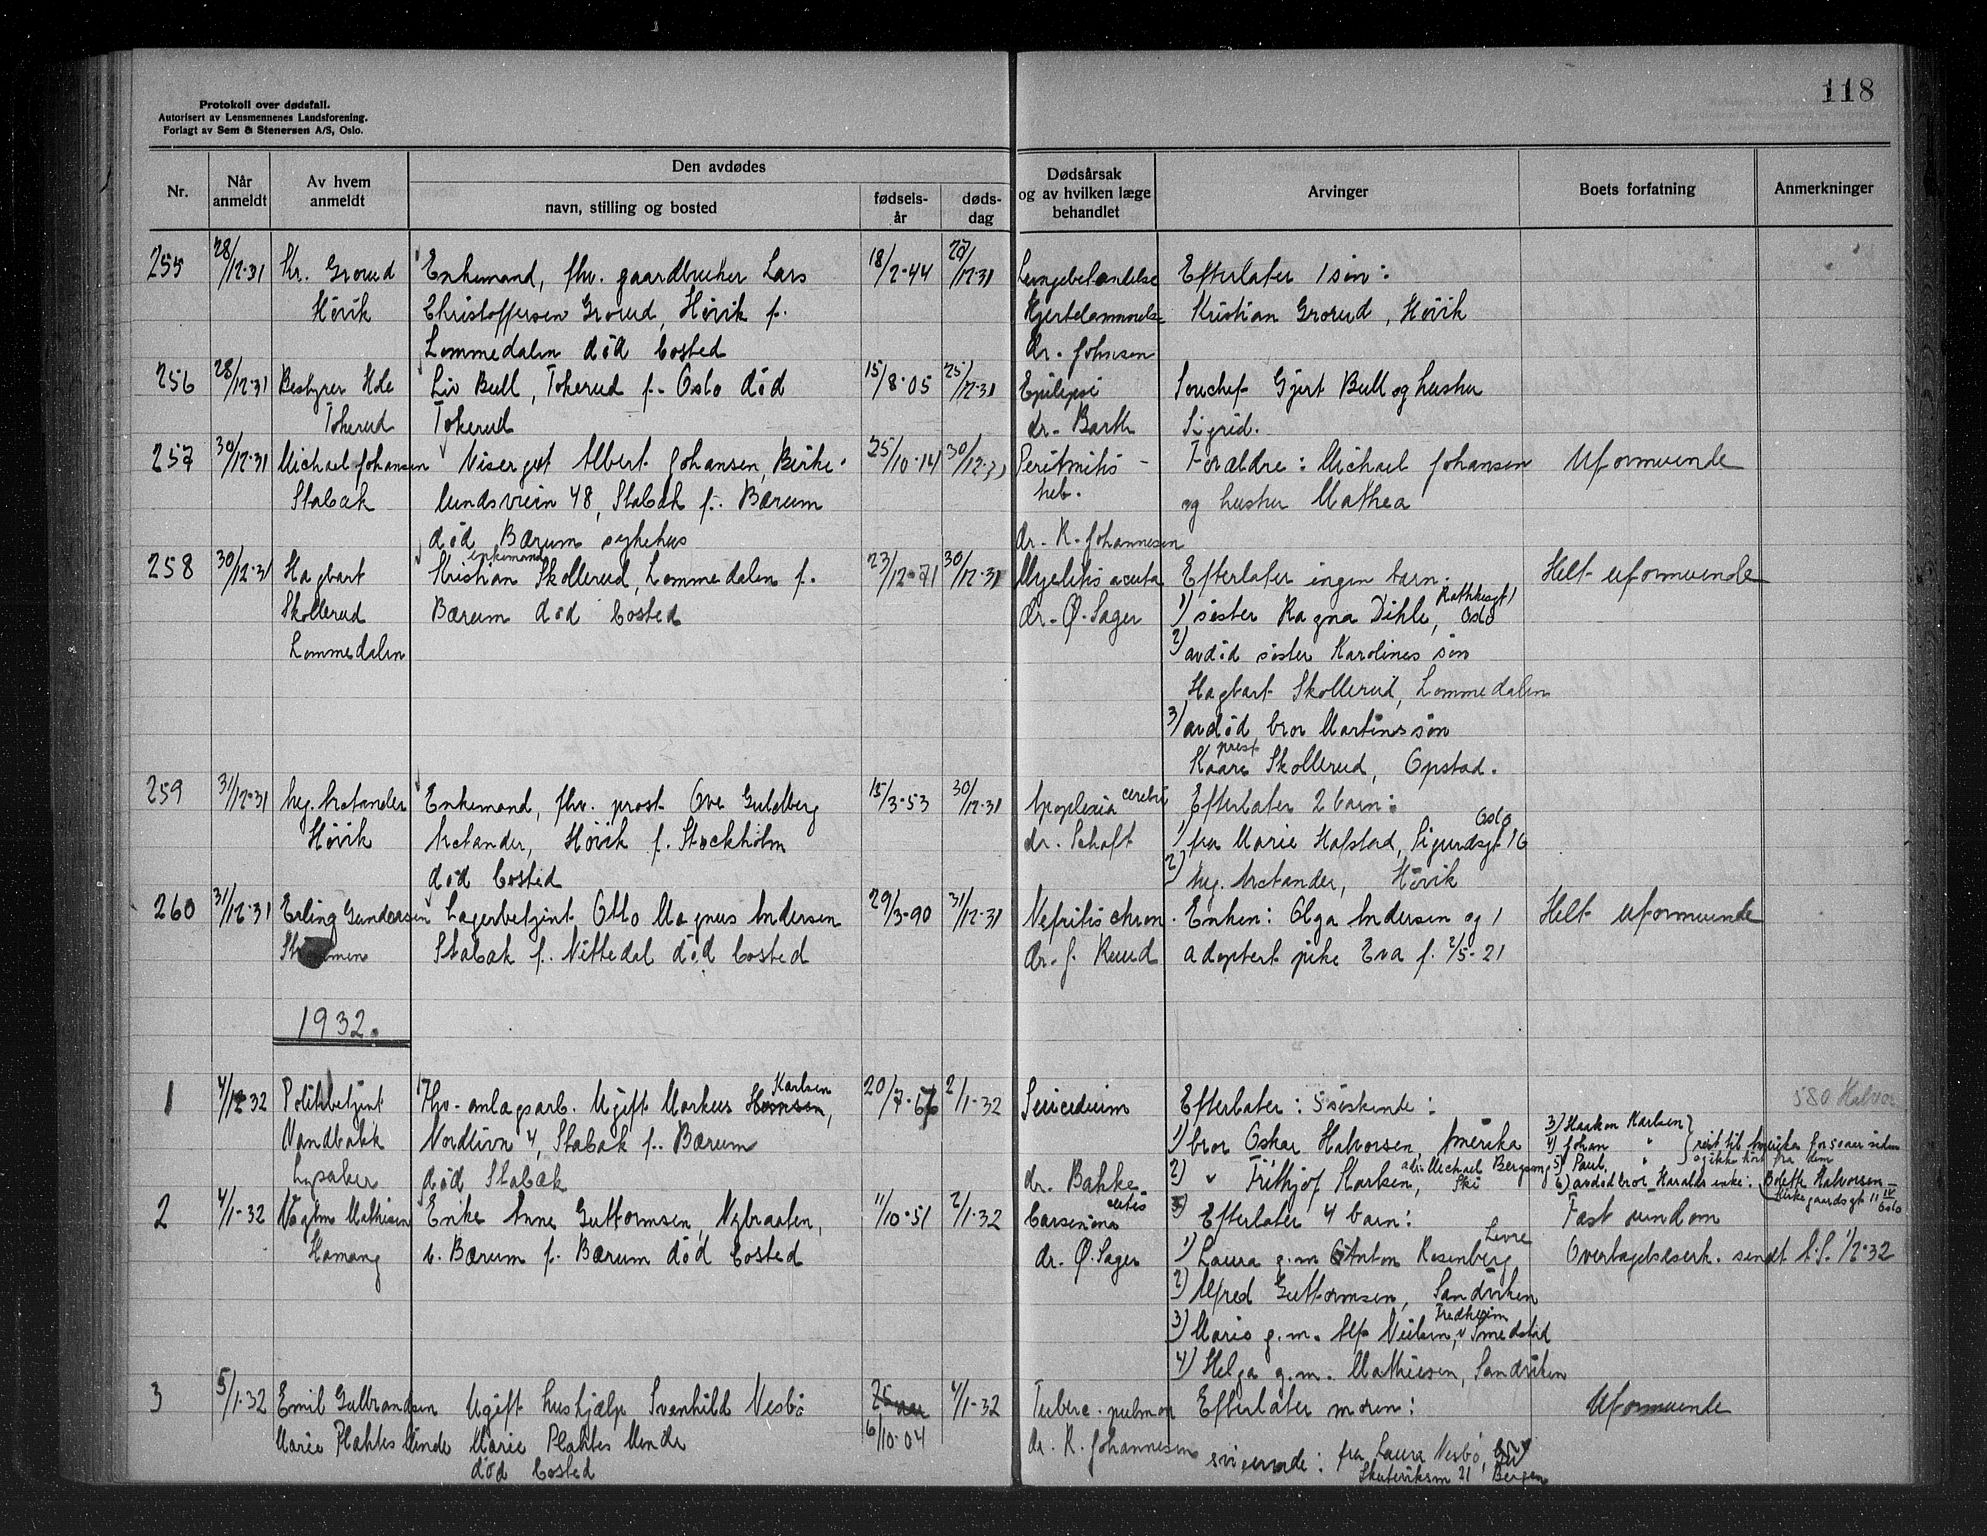 118
Protokoll over dødsfall.
Autorisert av Lensmennenes Landsforening.
Forlagt av Sem & Stenersen A/S, Oslo.
Nr.
Når anmeldt
Av hvem anmeldt
Den avdødes
navn, stilling og bosted
fødsels-år
døds-dag
Dødsårsak og av hvilken læge behandlet
Arvinger
Boets forfatning
Anmerkninger
255 28/12-31 Kr. Grorud Enkemand, fhv. gaardbruker Lars 18/2-44 27/12-31 Lungebetændelse Efterlater 1 søn:
Høvik Christoffersen Grorud, Høvik f. Hjertelammelse Kristian Grorud, Høvik
Lommedalen død bosted dr. Johnsen
256 28/12-31 Bestyrer Hole Liv Bull, Tokerud f. Oslo død 15/8-05 25/12-31 Epilepsi Souchef Gjert Bull og hustru
Tokerud Tokerud dr. Barth Sigrid.
257 30/12-31 Michael Johansen Visergut Albert Johansen, Birke- 25/10-14 30/12-31 Peritonitis - Forældre: Michael Johansen Uformuende
Stabæk lundsveien 48, Stabæk f. Bærum tub. og hustru Mathea
død Bærum sykehus dr. R. Johannesen
enkemand
258 30/12-31 Hagbart Kristian Skollerud, Lommedalen f. 23/12-71 30/12-31 Myelitis acuta Efterlater ingen barn. Helt uformuende
Skollerud Bærum død bosted dr. Ø. Sager 1) søster Ragna Dihle, Rathkesgt 1 Oslo
Lommedalen 2) avdød søster Karolines søn
Hagbart Skollerud, Lommedalen
3) avdød bror Martins søn
prest
Kaare Skollerud, Opstad.
259 31/12-31 Ing. Arctander Enkemand, fhv. prost Ove Guldberg 15/3-53 30/12-31 Apoplexia cerebri Efterlater 2 barn:
Høvik Arctander, Høvik f. Stockholm dr. Schaft 1) fru Marie Hafstad, Sigurdsgt 16 Oslo
død bosted 2) Ing. Arctander, Høvik
260 31/12-31 Erling Gundersen Lagerbetjent Otto Magnus Andersen 29/3-90 31/12-31 Nefritis chron. Enken: Olga Andersen og 1 Helt uformuende
Stabæk f. Nittedal død bosted dr. J. Ruud adoptert pike Eva f. 2/5-21
1932.
580 Halvor
Karlsen
1 4/1-32 Politibetjent Fhv. anlagsarb. Ugift Markus Hansen, 20/7-67 2/1-32 Suicidium Efterlater: 5 søskende:
Vandbakk Nordvn 4, Stabæk f. Bærum 1) bror Oskar Halvorsen, Amerika
Lysaker død Stabæk dr. Bakke 2) " Frithjof Karlsen, adr. Michael Bergseng, Ski
3) Haakon Karlsen
4) Johan " reist til Amerika for 50 aar siden
5) Paul, " og ikke hørt fra dem
6) avdød bror Haralds enke: Bolette Halvorsen
Kirkegaardsgt 11 IV Oslo
2 4/1-32 Vognm Mathisen Enke Anne Guttormsen, Nybraaten, 11/10-51 2/1-32 Carsinoma cutis Efterlater 4 barn: Fast eiendom
Hamang v. Bærum f. Bærum død bosted dr. Ø. Sager 1) Laura g.m. Anton Rosenberg Levre Overtagelseserk. sendt S.S. 1/2-32
2) Alfred Guttormsen, Sandviken
3) Marie g.m. Alf Nielsen, Fredheim v Smedstad
4) Helga g.m. Mathiesen, Sandviken
3 5/1-32 Emil Gulbrandsen Ugift hushjælp Svanhild Nesbø 25 aar 4/1-32 Tuberc. pulmon Efterlater moren: Uformuende
Marie Plahtes Minde Marie Plahtes Minde 6/10-04 dr. R. Johannesen fru Laura Nesbø,
død bosted Skuteviksvn 21 Bergen